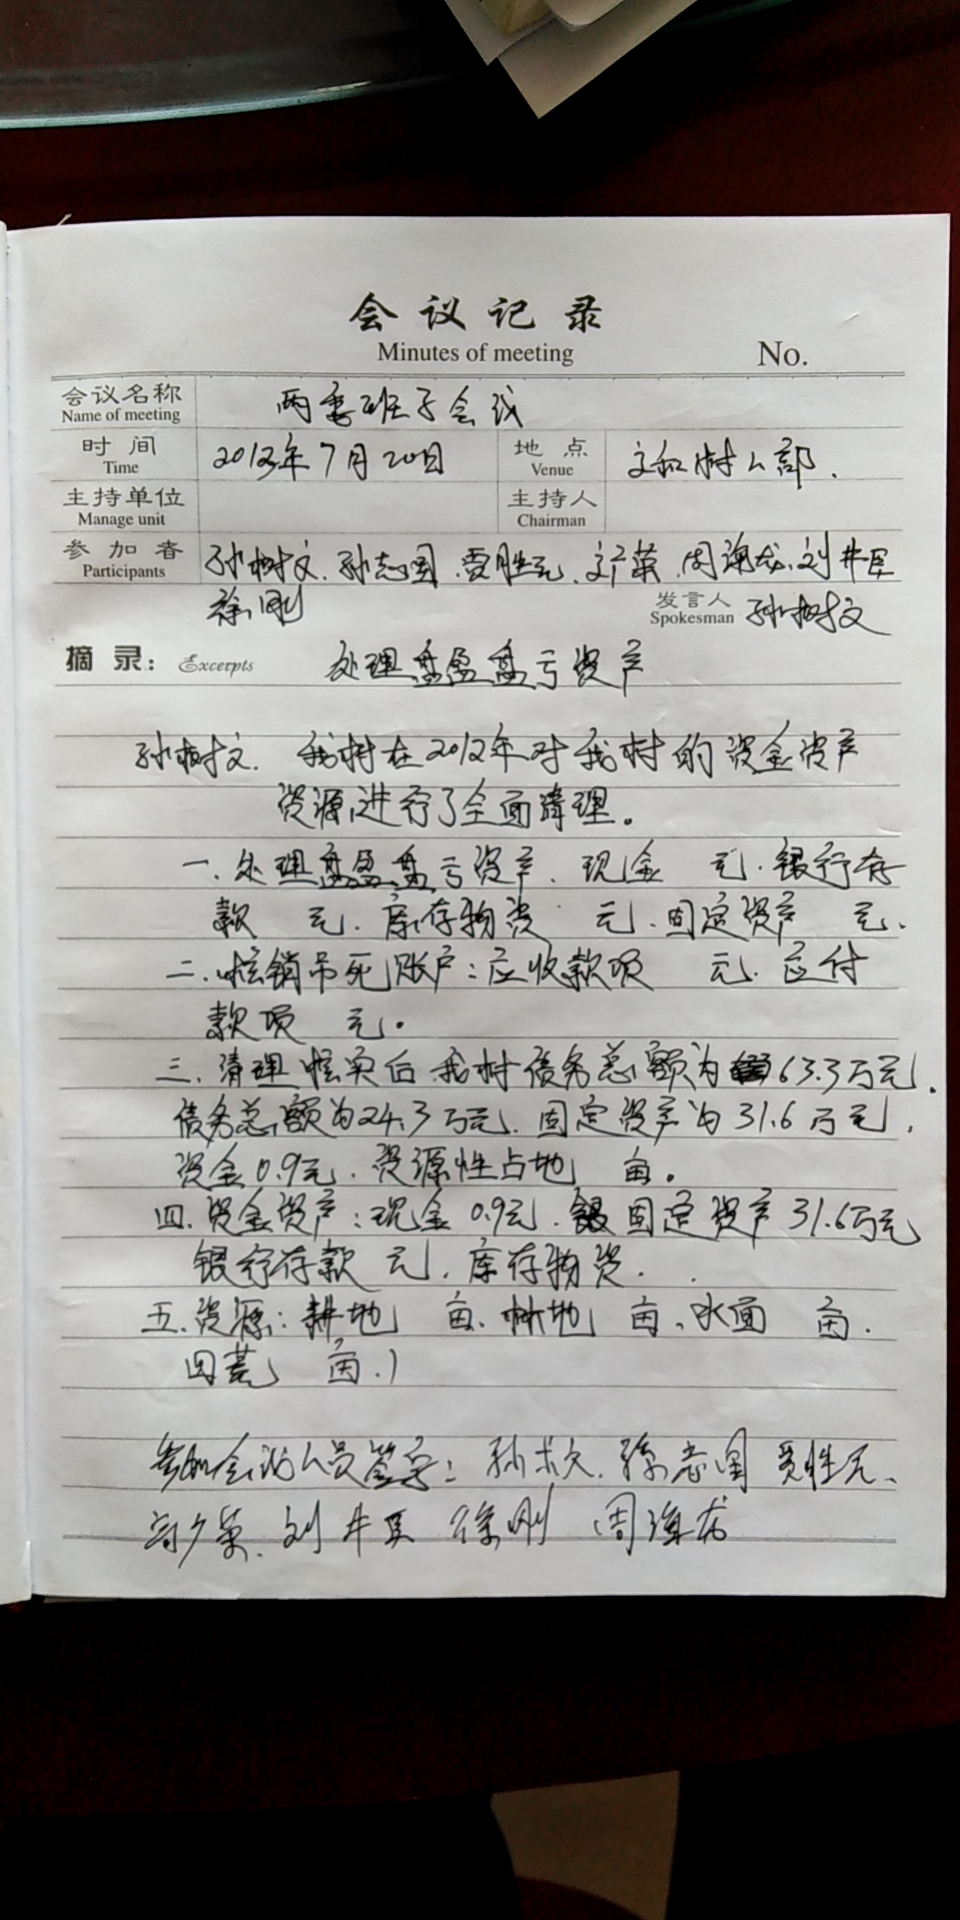 会议记录
Minutes of meeting No.
会议名称 两委班子会议
Name of meeting
时间 2012年7月20日 地点 文和村村部.
Time Venue
主持单位 主持人
Manage unit Chairman
参加者 孙树文.孙志国.贾胜元.刘井臣
Participants
徐刚 发言人 孙树文
Spokesman
摘录: Excerpts 处理盘盈盘亏资产
孙树文. 我村在2012年对我村的资金资产
资源,进行了全面清理。
一.处理盘盈盘亏资产、现金 元.银行存
款 元.库存物资 元.固定资产 元.
二.核销吊死账户:应收款项 元.应付
款项 元。
三.清理核实后.我村债务总额为63.3万元.
债务总额为24.3万元.固定资产为31.6万元.
资金0.9元.资源性占地 亩。
四.资金资产:现金0.9元.固定资产31.6万元
银行存款 元.库存物资.
五.资源:耕地 亩.林地 亩.水面 亩.
四荒 亩.
参加会议人员签字:孙术文.孙志国 贾胜元、
刘井臣 徐刚